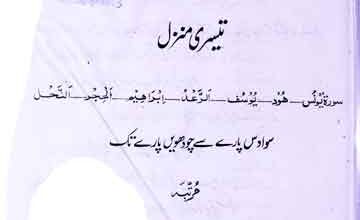 تیسری منزل
سورۃ یُونُس — ھُود — یُوسُف — اَلرَّعْد — اِبْرَاھِیْم — اَلْحِجْر — اَلنَّحْل
سوا دس پارے سے چودھویں پارے تک
مُرتّبہ